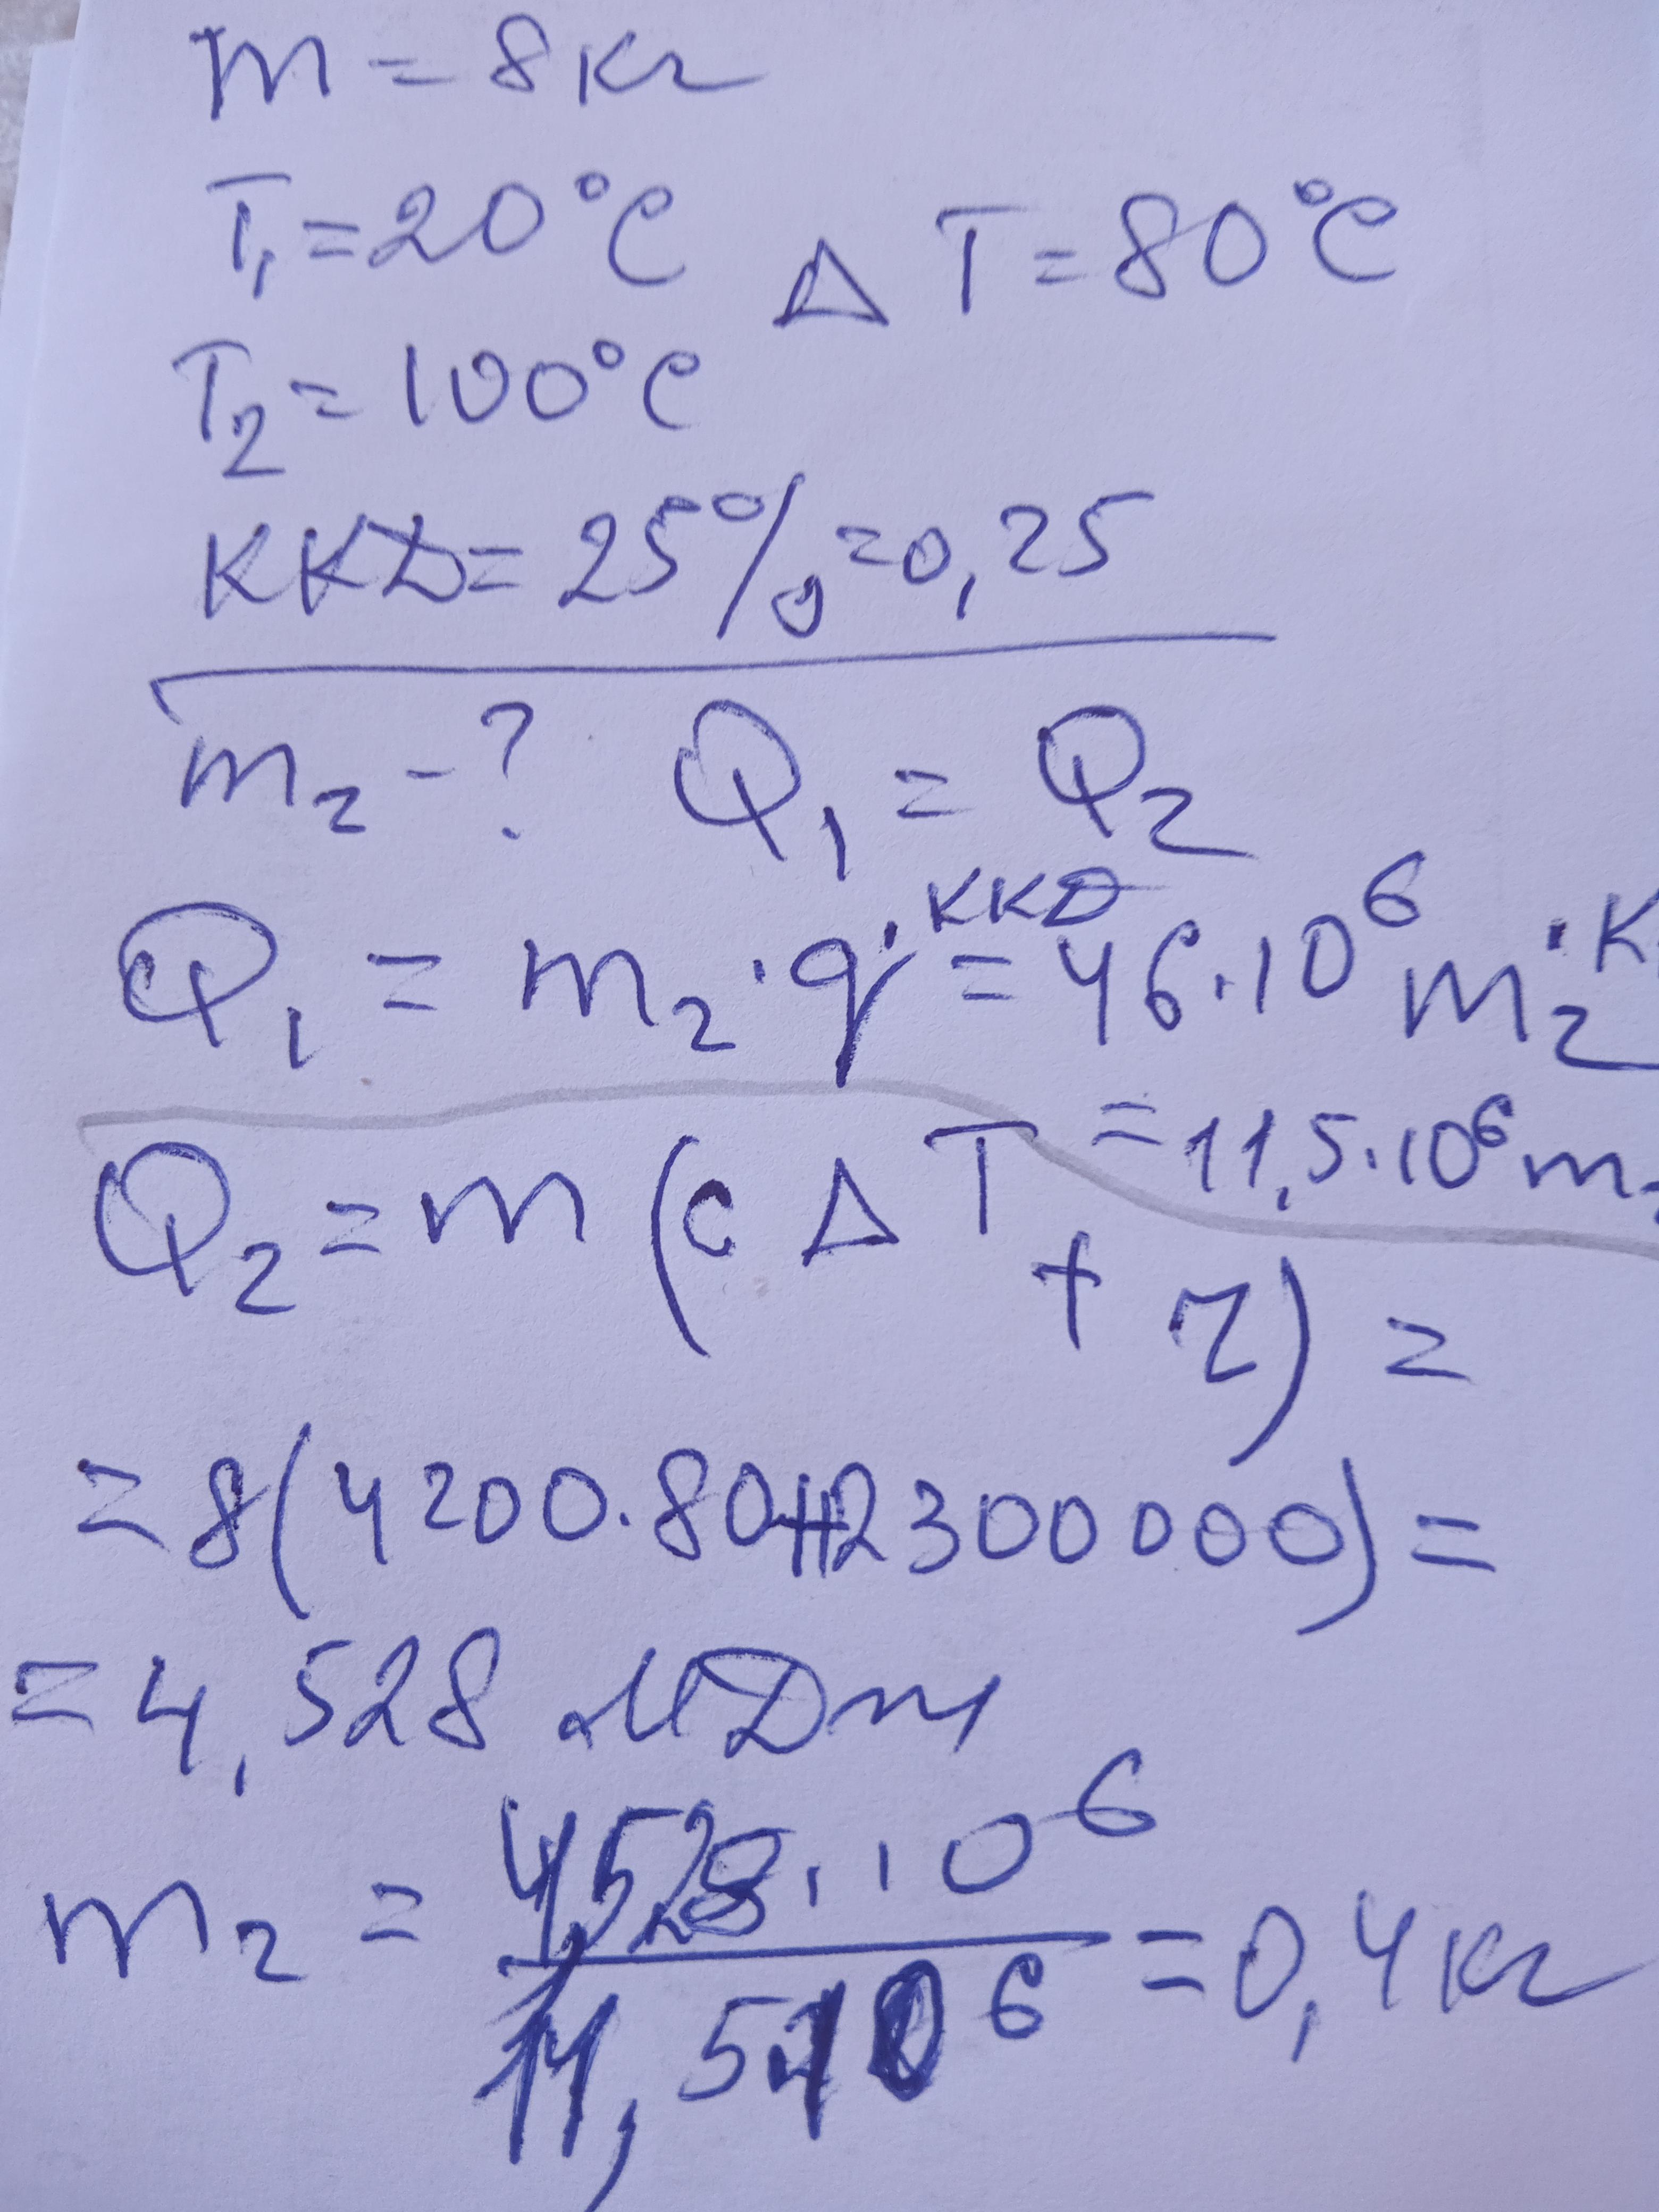 m = 8 кг
T₁ = 20°C ΔT = 80°C
T₂ = 100°C
ККД = 25% = 0,25
m₂ - ? Q₁ = Q₂
Q₁ = m₂ · q · ККД = 46 · 10⁶ m₂ · К
= 11,5 · 10⁶ m₂
Q₂ = m (c ΔT + r) =
= 8(4200 · 80 + 2300000) =
= 4,528 МДж
m₂ = 4,528 · 10⁶ / 11,5 10⁶ = 0,4 кг